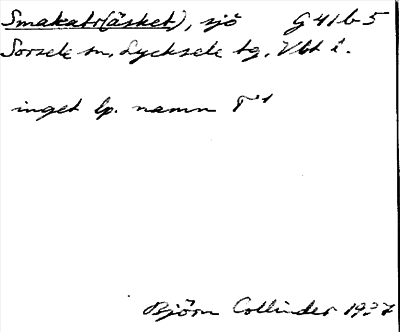 Smakatr(äsket), sjö G 41 b 5
Sorsele sn, Lycksele tg, Vbt l.
inget lp. namn
Björn Collinder 1937